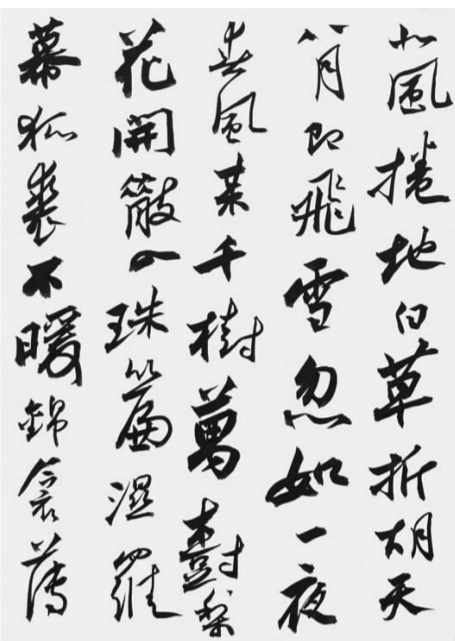 北風捲地白草折胡天
八月即飛雪忽如一夜
春風来千樹萬樹梨
花開散入珠簾濕羅
幕狐裘不暖錦衾薄